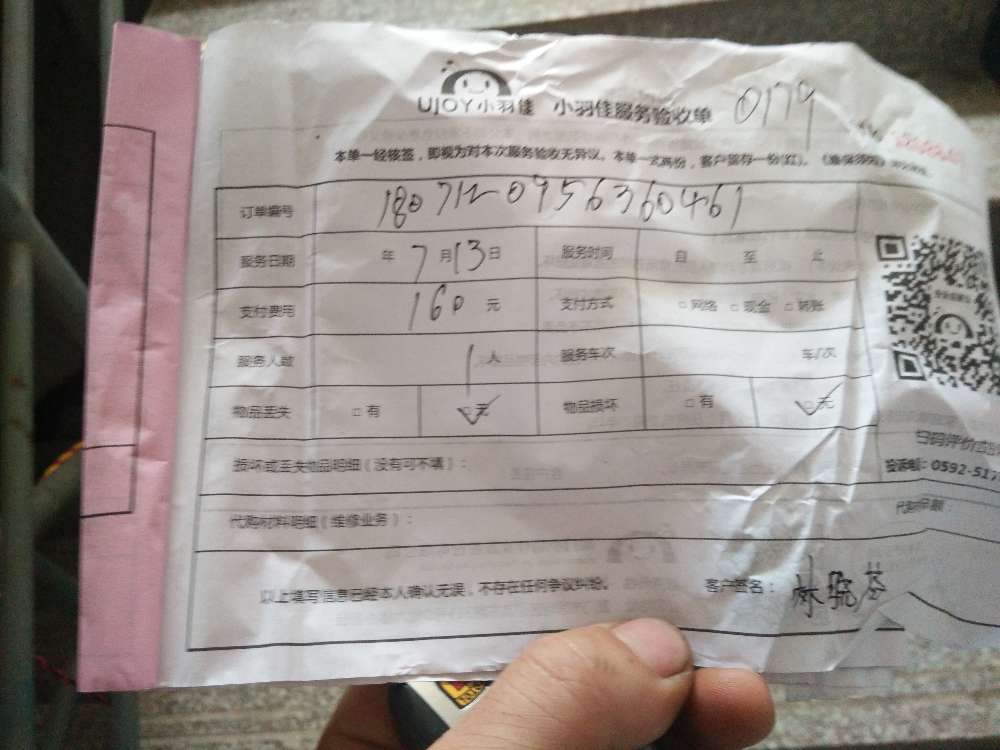 UJOY小羽佳 小羽佳服务验收单 0179
本单一经核签，即视为对本次服务验收无异议。本单一式两份，客户留存一份(红)。
订单编号 180712095636046​1
服务日期 年 7 月 13 日 服务时间 自 至 止
支付费用 160 元 支付方式 □网络 □现金 □转账
服务人数 1 人 服务车次 车/次
物品丢失 □有 ☑无 物品损坏 □有 ☑无
扫码评价或投
损坏或丢失物品明细（没有可不填）：
投诉电话：0592-517
代购材料明细（维修业务）：
以上填写信息已经本人确认无误，不存在任何争议纠纷。 客户签名：林晓芬